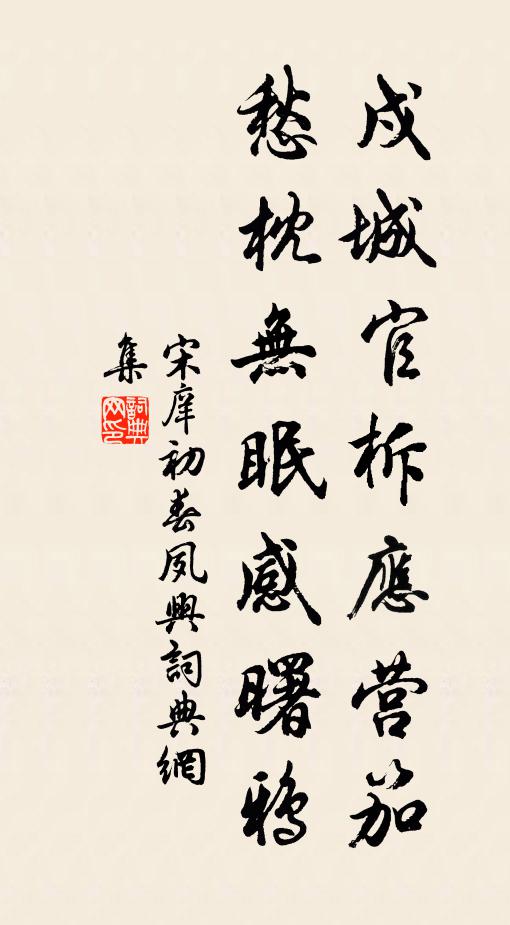 戍城官柝應营笳
愁枕無眠感曙鴉
宋庠初春夙興詞典網
集
詞典網印